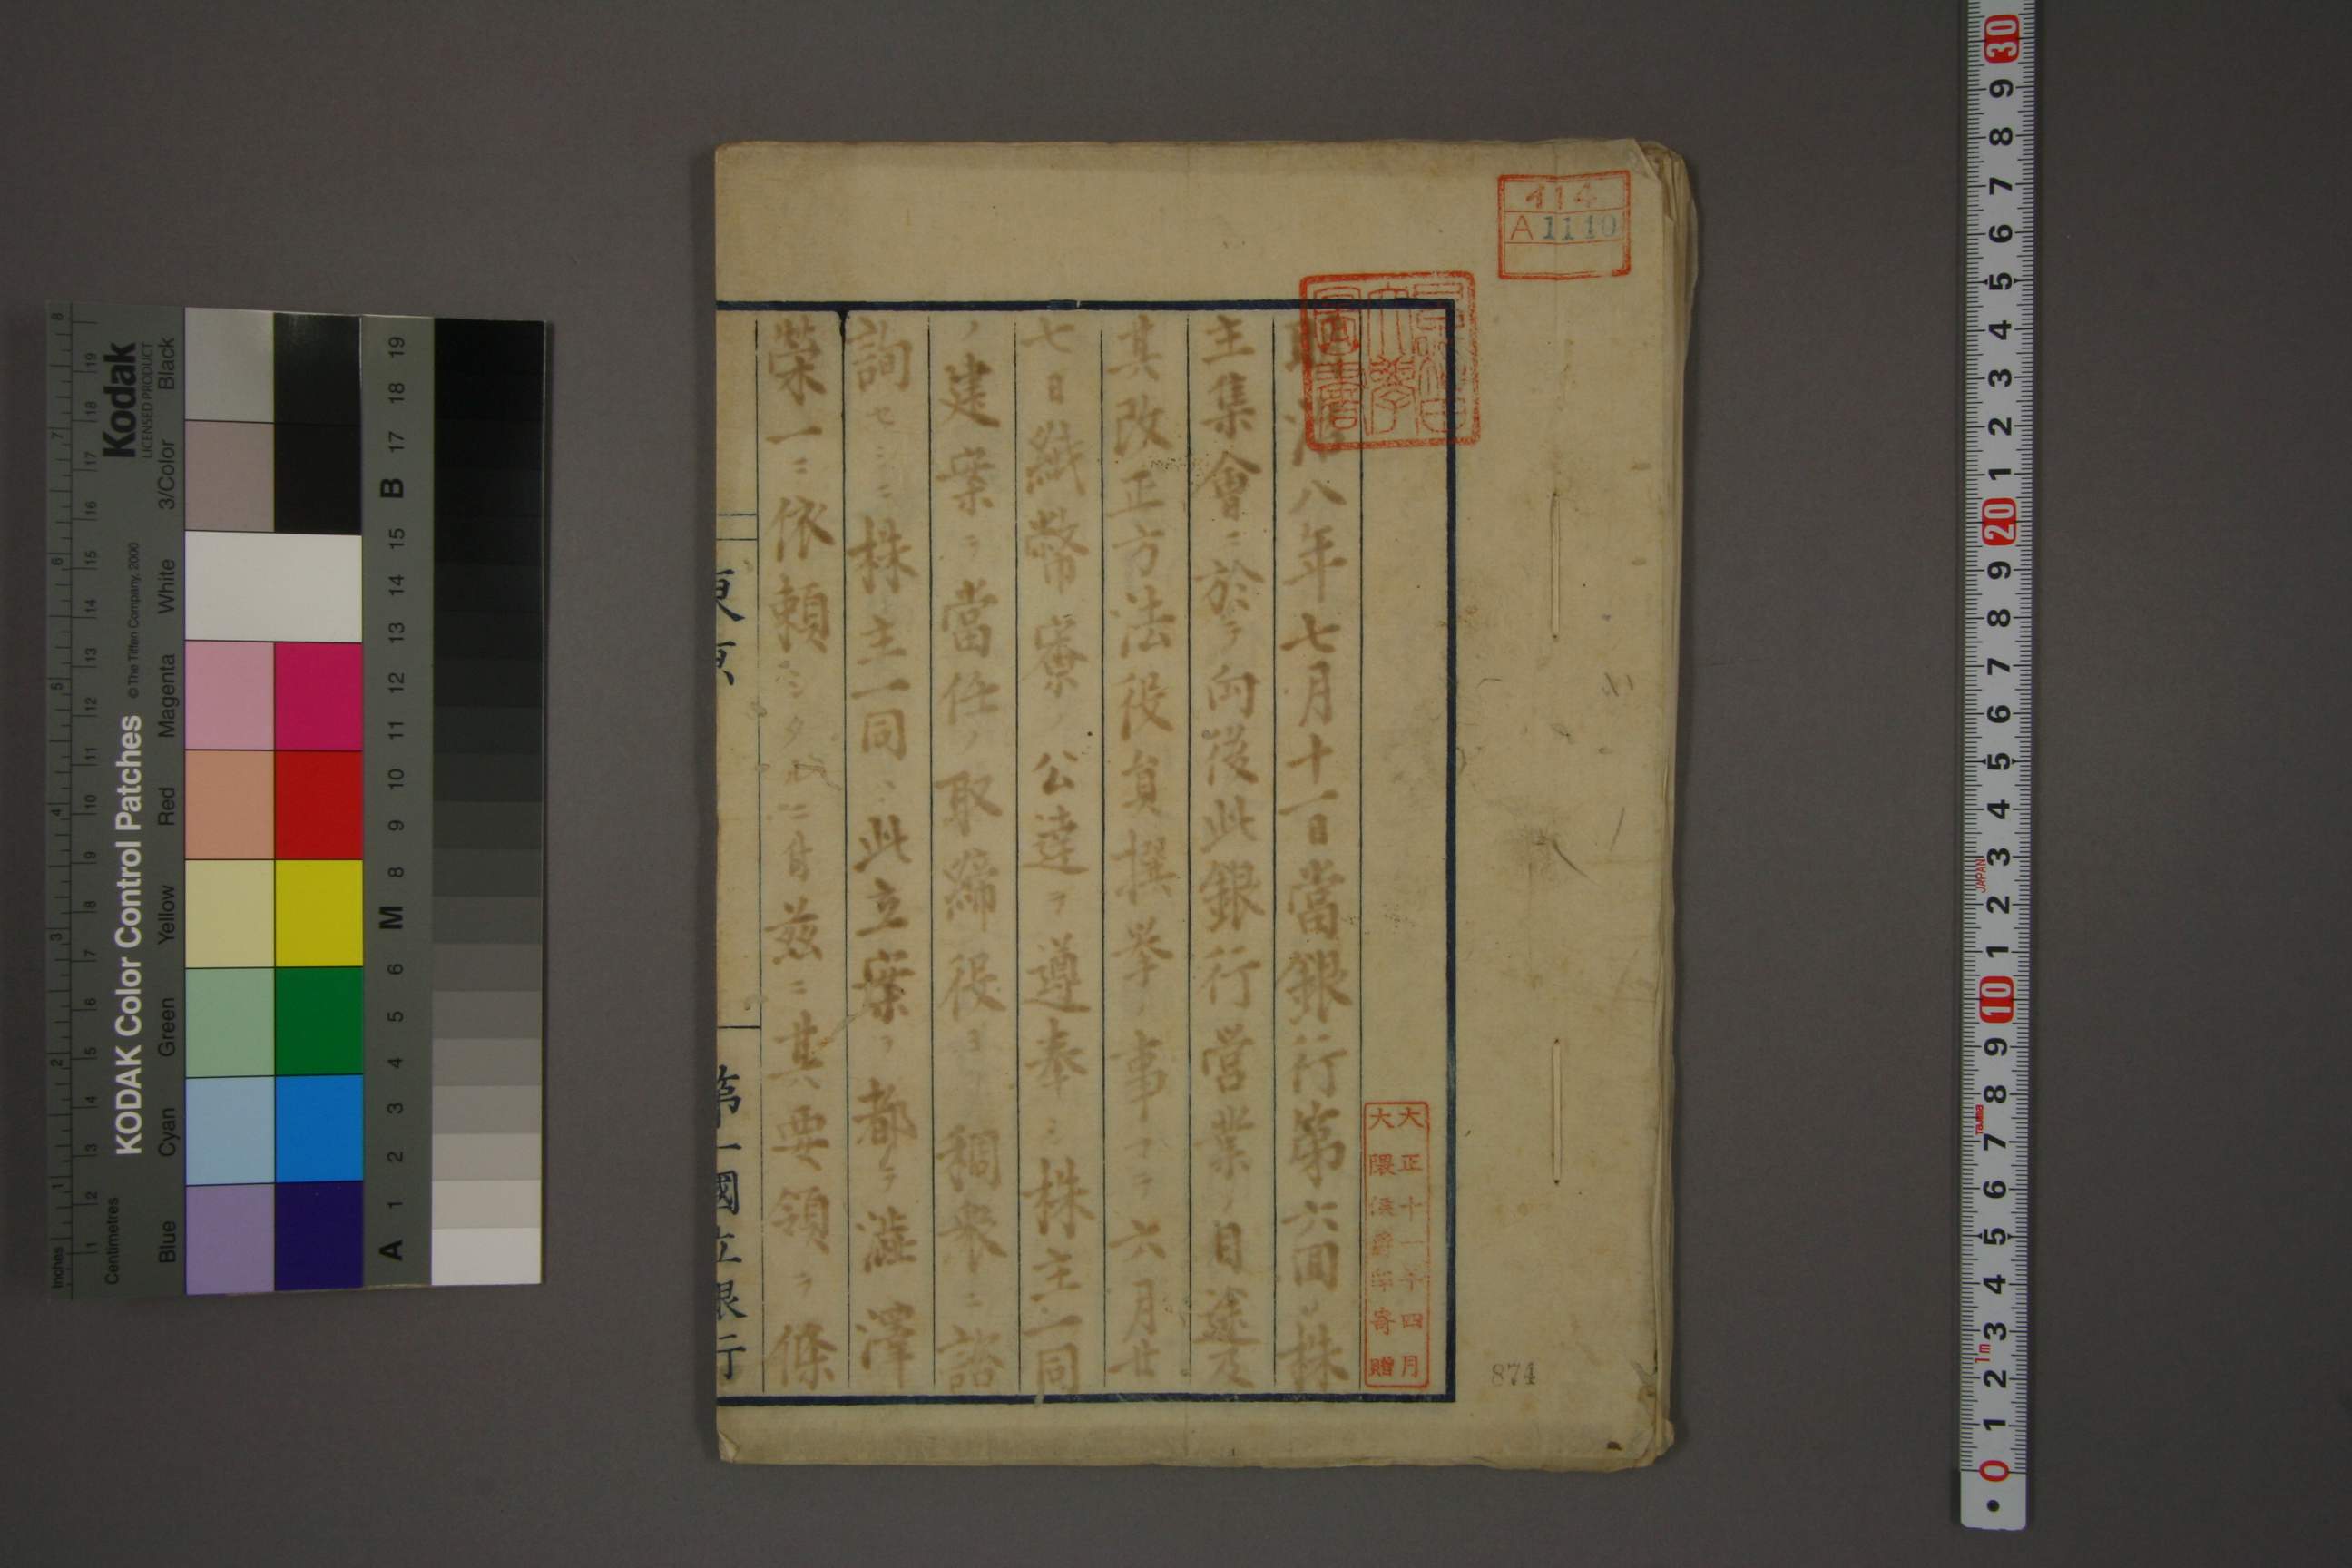 イ14
A 1140
早稲田大學圖書
明治八年七月十一日當銀行第六回ノ株
主集會ニ於テ向後此銀行営業ノ目途及
其改正方法役員撰挙ノ事マテ六月廿
七日紙幣寮ノ公達ヲ遵奉シ株主一同
ノ建案ヲ當任ノ取締役ヨリ稠衆ニ諮
詢セシニ株主一同ハ此立案ヲ都テ澁澤
榮一ニ依頼シタルニ付茲ニ其要領ヲ條
東京
第一國立銀行
大正十一年四月
大隈侯爵家寄贈
874
KODAK Color Control Patches
© The Tiffen Company, 2000
Kodak
LICENSED PRODUCT
Inches
Centimetres
Blue
Cyan
Green
Yellow
Red
Magenta
White
3/Color
Black
A 1 2 3 4 5 6 M 8 9 10 11 12 13 14 15 B 17 18 19
JAPAN
TAJIMA
1m